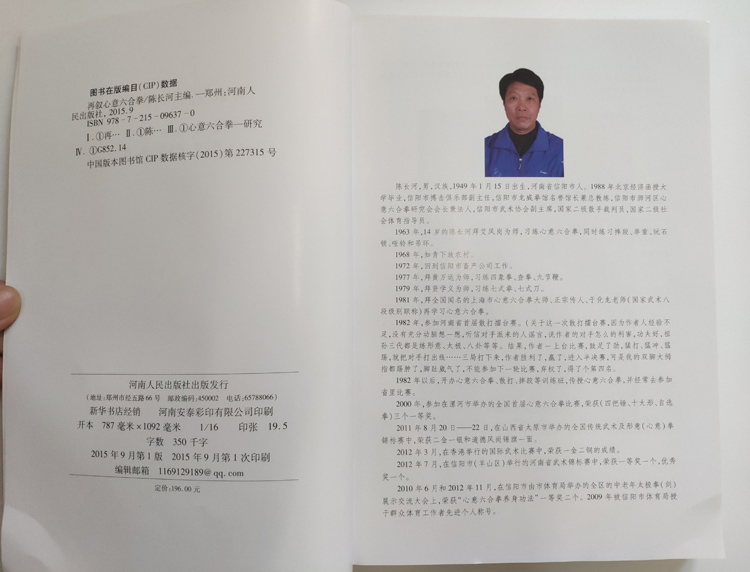 图书在版编目(CIP)数据
再叙心意六合拳/陈长河主编.—郑州:河南人
民出版社, 2015.9
ISBN 978-7-215-09637-0
Ⅰ.①再… Ⅱ.①陈… Ⅲ.①心意六合拳—研究
Ⅳ.①G852.14
中国版本图书馆CIP数据核字(2015)第227315号
河南人民出版社出版发行
(地址:郑州市经五路66号 邮政编码:450002 电话:65788066)
新华书店经销 河南安泰彩印有限公司印刷
开本 787毫米×1092毫米 1/16 印张 19.5
字数 350千字
2015年9月第1版 2015年9月第1次印刷
编辑邮箱 1169129189@qq.com
定价:196.00元
陈长河,男,汉族,1949年1月15日出生,河南省信阳市人。1988年北京经济函授大
学毕业,信阳市搏击俱乐部副主任,信阳市龙威拳馆名誉馆长兼总教练,信阳市浉河区心
意六合拳研究会会长兼法人,信阳市武术协会副主席,国家二级散手裁判员,国家二级社
会体育指导员。
1963年,14岁的陈长河拜艾凤岗为师,习练心意六合拳,同时练习摔跤、举重、玩石
锁、哑铃和吊环。
1968年,知青下放农村。
1972年,回到信阳市畜产公司工作。
1977年,拜栗万运为师,习练四象拳、查拳、九节鞭。
1979年,拜贺学义为师,习练七式拳、七式刀。
1981年,拜全国闻名的上海市心意六合拳大师、正宗传人、于化龙老师(国家武术八
段级别职称)再学习心意六合拳。
1982年,参加河南省首届散打擂台赛。(关于这一次散打擂台赛,因为作者人经验不
足,没有充分动脑想一想,听信对手派来的人谣言,说作者的对手怎么的利害,功夫到,祖
孙三代都是练形意、太极、八卦等等。结果,作者一上台比赛,鼓足了劲,猛打、猛冲、猛
踢,就把对手打出线……三局打下来,作者胜利了,赢了,进入半决赛,可是我的双脚大拇
指都踢肿了,脚趾戴气了,不能参加下一轮比赛,弃权了,得了个第四名。
1982年以后,开办心意六合拳、散打、摔跤等训练班,传授心意六合拳,并经常去参加
省里比赛。
2000年,参加在漯河市举办的全国首届心意六合拳比赛,荣获(四把锤、十大形、自选
拳)三个一等奖。
2011年8月20日——22日,在山西省太原市举办的全国传统武术及形意(心意)拳
锦标赛中,荣获二金一银和道德风尚锦旗一面。
2012年3月,在香港举行的国际武术比赛中,荣获一金二铜的成绩。
2012年7月,在信阳市(羊山区)举行的河南省武术锦标赛中,荣获一等奖一个,优秀
奖一个。
2010年6月和2012年11月,在信阳市由市体育局举办的全区的中老年太极拳(剑)
展示交流大会上,荣获“心意六合拳养身功法”一等奖二个。2009年被信阳市体育局授
于群众体育工作者先进个人称号。